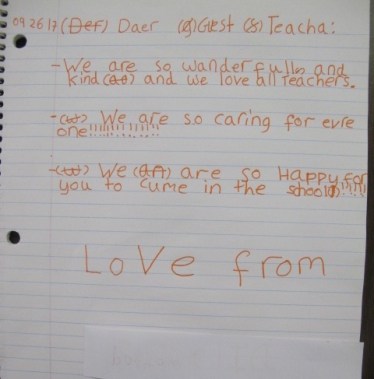 09.26.17 (Def) Daer (g) Gest (s) Teacha:
- We are so wanderfulls and
kind (ae) and we love all teachers.
- (w) We are so caring for evre
one!!!!!!!!!!!!!!
- (w) We (an) are so Happy for
you to cume in the school!!!!!
LoVe from